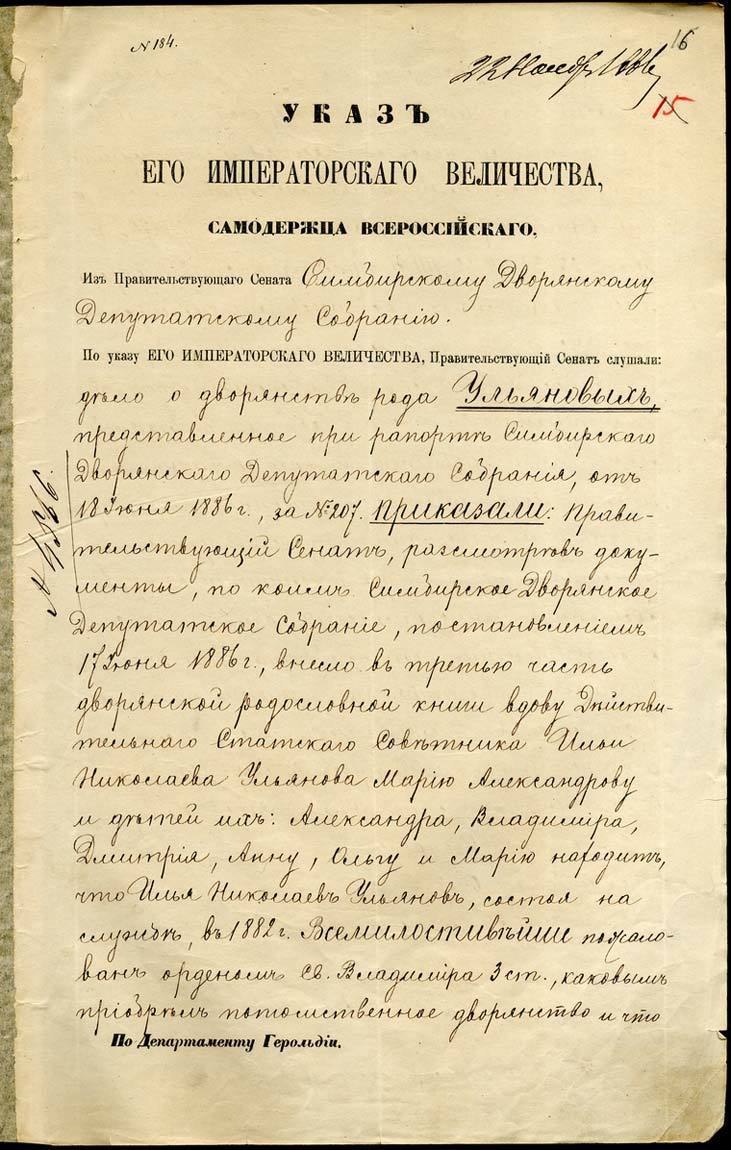 N 184.
16
22 Ноябр 1886
15
УКАЗЪ
ЕГО ИМПЕРАТОРСКАГО ВЕЛИЧЕСТВА,
САМОДЕРЖЦА ВСЕРОССІЙСКАГО.
Изъ Правительствующаго Сената Симбирскому Дворянскому
Депутатскому Собранію.
По указу ЕГО ИМПЕРАТОРСКАГО ВЕЛИЧЕСТВА, Правительствующій Сенатъ слушали:
дѣло о дворянствѣ рода Ульяновыхъ,
представленное при рапортѣ Симбирскаго
Дворянскаго Депутатскаго Собранія, отъ
18 Іюня 1886 г., за № 207. Приказали: Прави-
тельствующій Сенатъ, разсмотрѣвъ доку-
менты, по коимъ Симбирское Дворянское
Депутатское Собраніе, постановленіемъ
17 Іюня 1886 г., внесло въ третью часть
дворянской родословной книги вдову Дѣйстви-
тельнаго Статскаго Совѣтника Ильи
Николаева Ульянова Марію Александрову
и дѣтей ихъ: Александра, Владиміра,
Дмитрія, Анну, Ольгу и Марію находитъ,
что Илья Николаевъ Ульяновъ, состоя на
службѣ, въ 1882 г. Всемилостивѣйше пожало-
ванъ орденомъ Св. Владиміра 3 ст., каковымъ
пріобрѣлъ потомственное дворянство и что
По Департаменту Герольдіи.